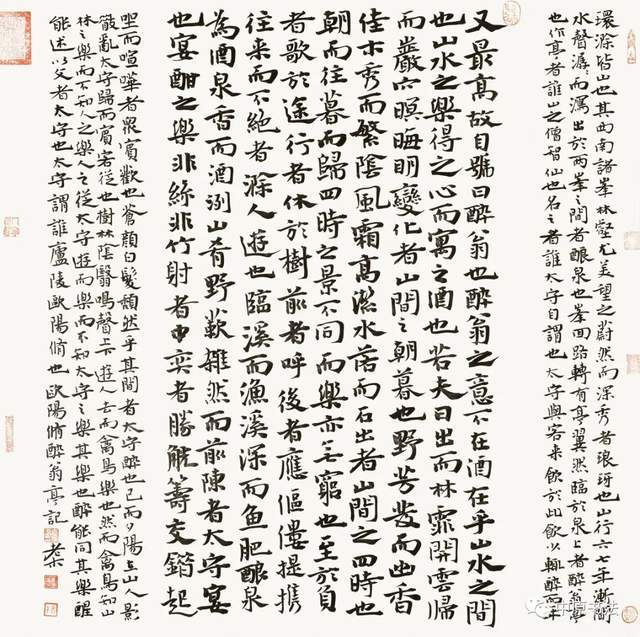 環滁皆山也其西南諸峯林壑尤美望之蔚然而深秀者琅琊也山行六七里漸聞
水聲潺潺而瀉出於兩峯之間者釀泉也峯回路轉有亭翼然臨於泉上者醉翁亭
也作亭者誰山之僧智仙也名之者誰太守自謂也太守與客來飲於此飲少輒醉而年
又最高故自號曰醉翁也醉翁之意不在酒在乎山水之間
也山水之樂得之心而寓之酒也若夫日出而林霏開雲歸
而巖穴暝晦明變化者山間之朝暮也野芳發而幽香
佳木秀而繁陰風霜高潔水落而石出者山間之四時也
朝而往暮而歸四時之景不同而樂亦无窮也至於負
者歌於途行者休於樹前者呼後者應傴僂提攜
往來而不絕者滁人遊也臨溪而漁溪深而魚肥釀泉
為酒泉香而酒洌山肴野蔌雜然而前陳者太守宴
也宴酣之樂非絲非竹射者中奕者勝觥籌交錯起
坐而喧嘩者衆賓歡也蒼顏白髮頹然乎其間者太守醉也已而夕陽在山人影
散亂太守歸而賓客從也樹林陰翳鳴聲上下遊人去而禽鳥樂也然而禽鳥知山
林之樂而不知人之樂人之從太守遊而樂而不知太守之樂其樂也醉能同其樂醒
能述以文者太守也太守謂誰廬陵歐陽脩也 歐陽脩醉翁亭記
中原书法